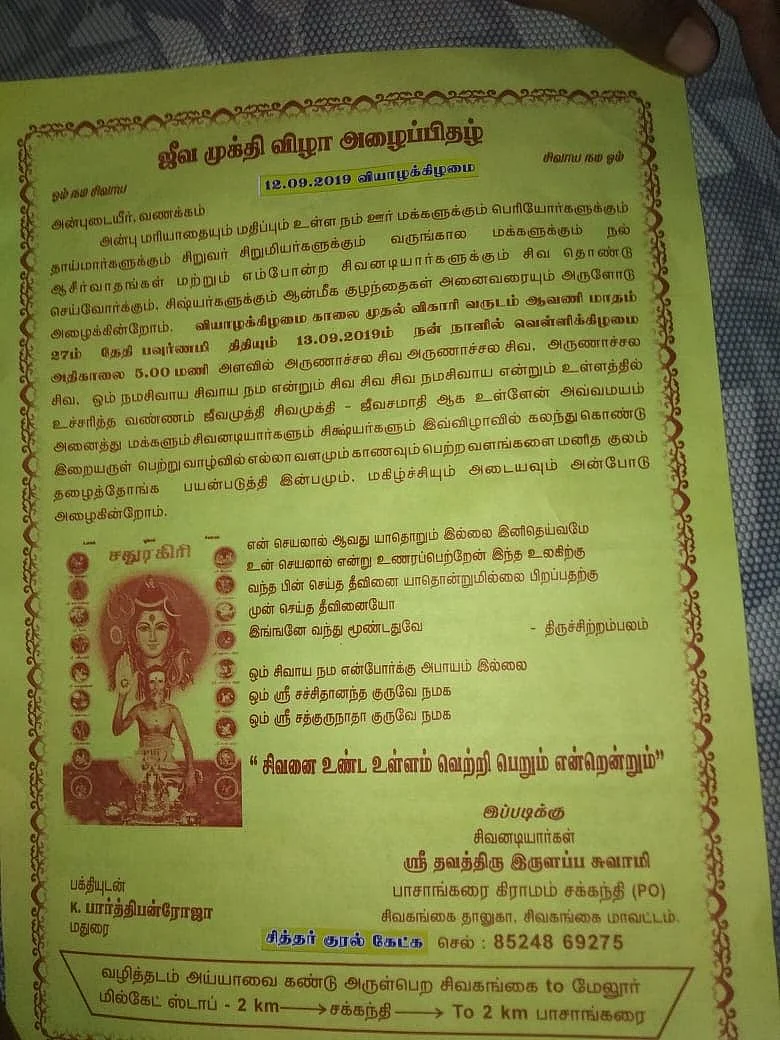 ஜீவ முக்தி விழா அழைப்பிதழ்
ஓம் நம சிவாய
சிவாய நம ஓம்
12.09.2019 வியாழக்கிழமை
அன்புடையீர், வணக்கம்
அன்பு மரியாதையும் மதிப்பும் உள்ள நம் ஊர் மக்களுக்கும் பெரியோர்களுக்கும்
தாய்மார்களுக்கும் சிறுவர் சிறுமியர்களுக்கும் வருங்கால மக்களுக்கும் நல்
ஆசீர்வாதங்கள் மற்றும் எம்போன்ற சிவனடியார்களுக்கும் சிவ தொண்டு
செய்வோர்க்கும், சிஷ்யர்களுக்கும் ஆன்மீக குழந்தைகள் அனைவரையும் அருளோடு
அழைக்கின்றோம். வியாழக்கிழமை காலை முதல் விகாரி வருடம் ஆவணி மாதம்
27ம் தேதி பவுர்ணமி திதியும் 13.09.2019ம் நன் நாளில் வெள்ளிக்கிழமை
அதிகாலை 5.00 மணி அளவில் அருணாச்சல சிவ அருணாச்சல சிவ, அருணாச்சல
சிவ, ஓம் நமசிவாய சிவாய நம என்றும் சிவ சிவ சிவ நமசிவாய என்றும் உள்ளத்தில்
உச்சரித்த வண்ணம் ஜீவமுத்தி சிவமுக்தி - ஜீவசமாதி ஆக உள்ளேன் அவ்வமயம்
அனைத்து மக்களும் சிவனடியார்களும் சிக்ஷ்யர்களும் இவ்விழாவில் கலந்து கொண்டு
இறையருள் பெற்று வாழ்வில் எல்லா வளமும் காணவும் பெற்ற வளங்களை மனித குலம்
தழைத்தோங்க பயன்படுத்தி இன்பமும், மகிழ்ச்சியும் அடையவும் அன்போடு
அழைகின்றோம்.
சதுரகிரி
என் செயலால் ஆவது யாதொறும் இல்லை இனிதெய்வமே
உன் செயலால் என்று உணரப்பெற்றேன் இந்த உலகிற்கு
வந்த பின் செய்த தீவினை யாதொன்றுமில்லை பிறப்பதற்கு
முன் செய்த தீவினையோ
இங்ஙனே வந்து மூண்டதுவே - திருச்சிற்றம்பலம்
ஓம் சிவாய நம என்போர்க்கு அபாயம் இல்லை
ஓம் ஸ்ரீ சச்சிதானந்த குருவே நமக
ஓம் ஸ்ரீ சத்குருநாதா குருவே நமக
“ சிவனை உண்ட உள்ளம் வெற்றி பெறும் என்றென்றும்”
இப்படிக்கு
சிவனடியார்கள்
ஸ்ரீ தவத்திரு இருளப்ப சுவாமி
பாசாங்கரை கிராமம் சக்கந்தி (PO)
சிவகங்கை தாலுகா, சிவகங்கை மாவட்டம்.
பக்தியுடன்
K. பார்த்திபன்ரோஜா
மதுரை
சித்தர் குரல் கேட்க செல் : 85248 69275
வழித்தடம் அய்யாவை கண்டு அருள்பெற சிவகங்கை to மேலூர்
மில்கேட் ஸ்டாப் - 2 km ⟶ சக்கந்தி ⟶ To 2 km பாசாங்கரை